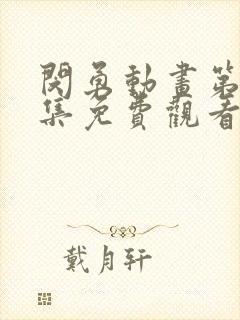 閃勇動畫第
集免費觀看
戴月轩